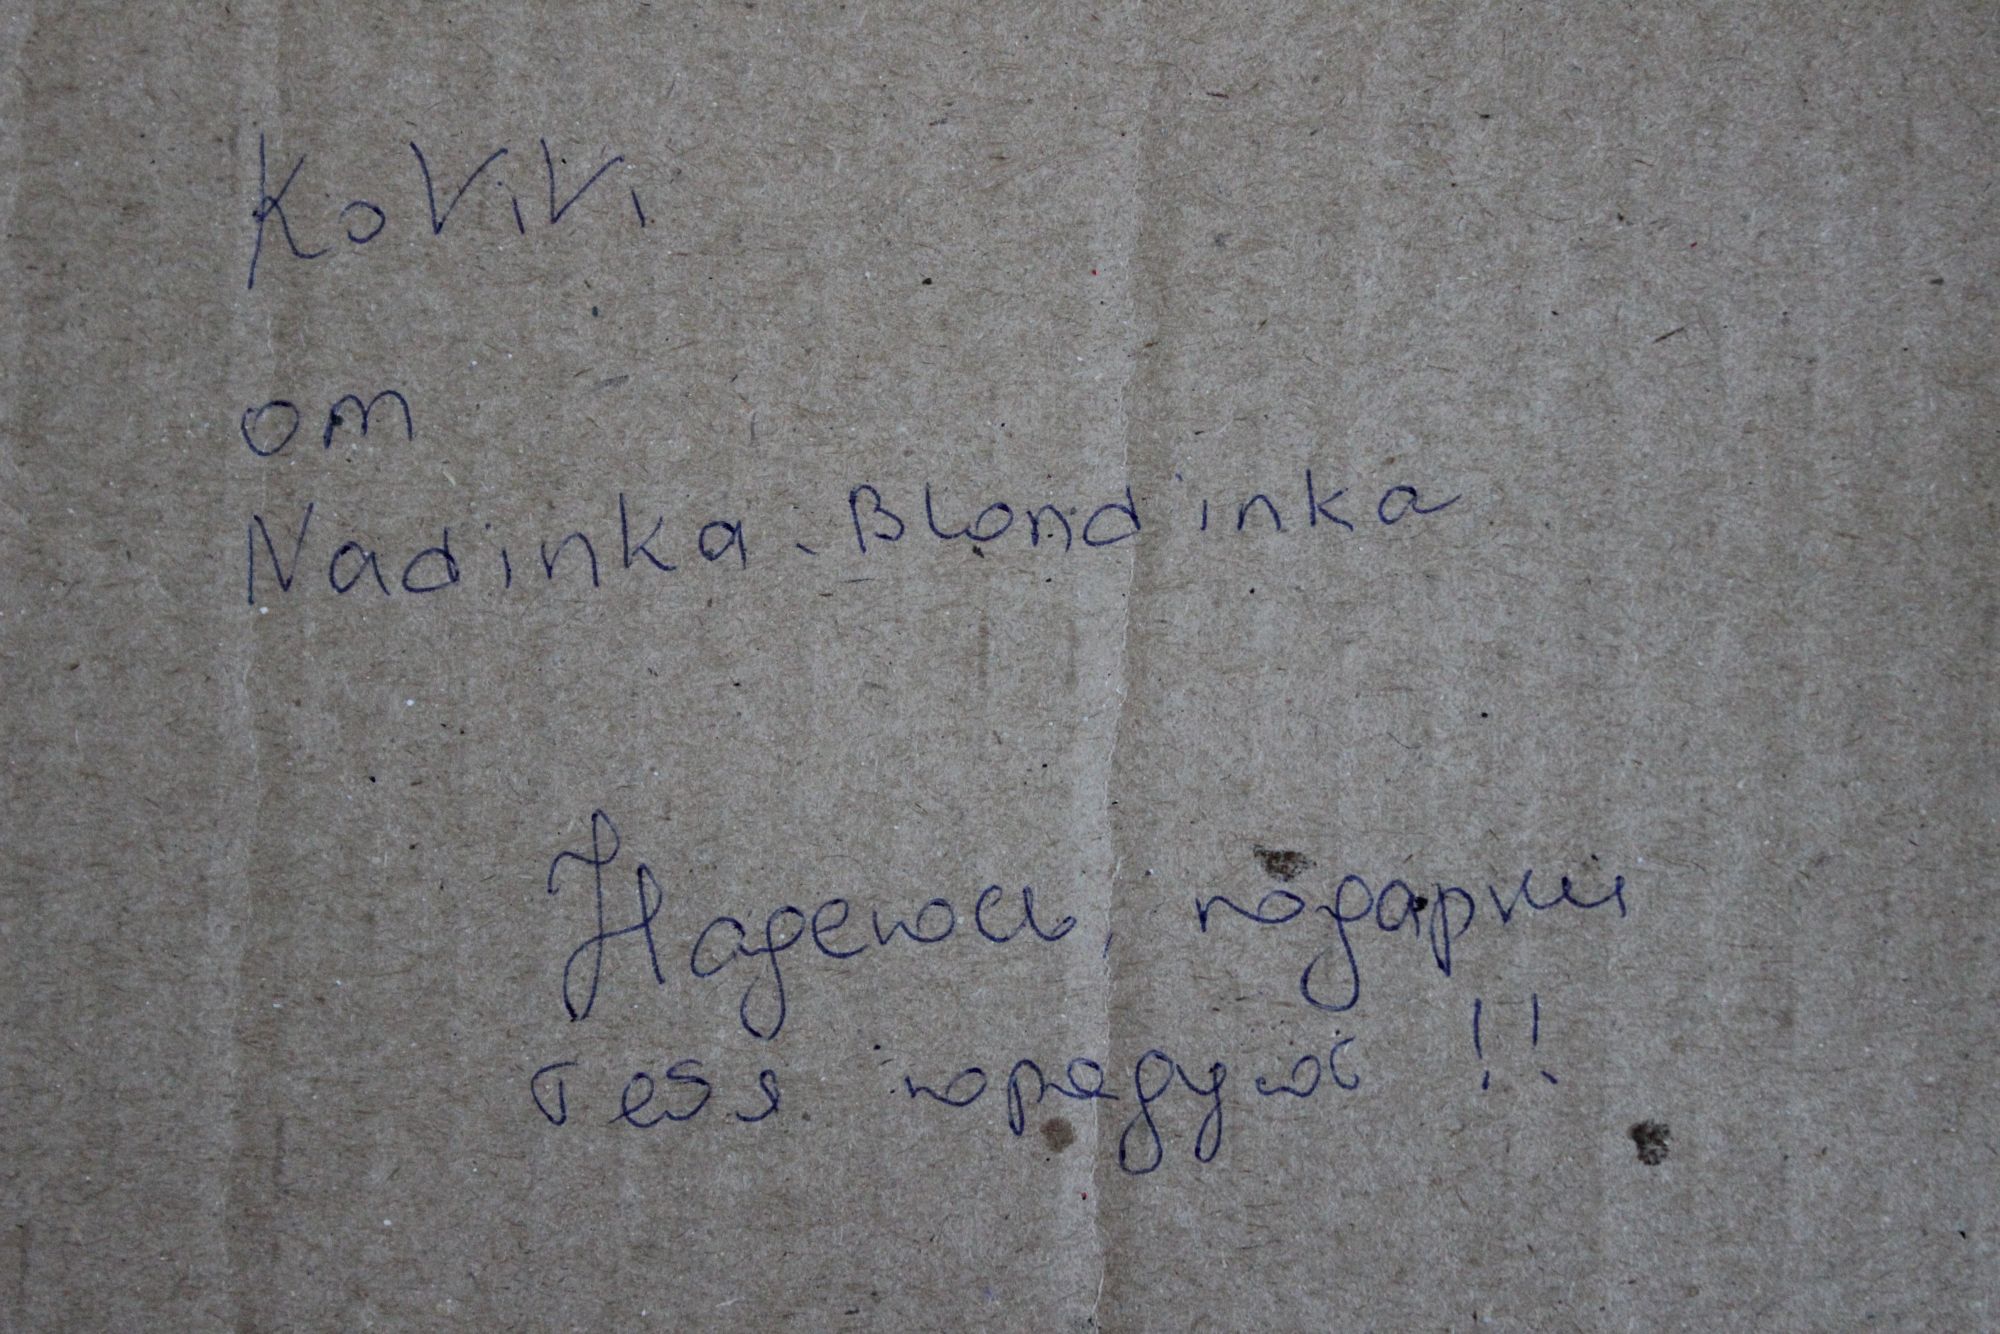 KoViVi
от
Nadinka-Blondinka
Надеюсь, подарки
тебя порадуют !!